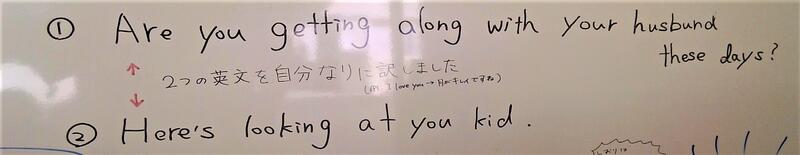 ① Are you getting along with your husbund
these days?
2つの英文を自分なりに訳しました
(例. I love you → 月がキレイですね)
② Here's looking at you kid.